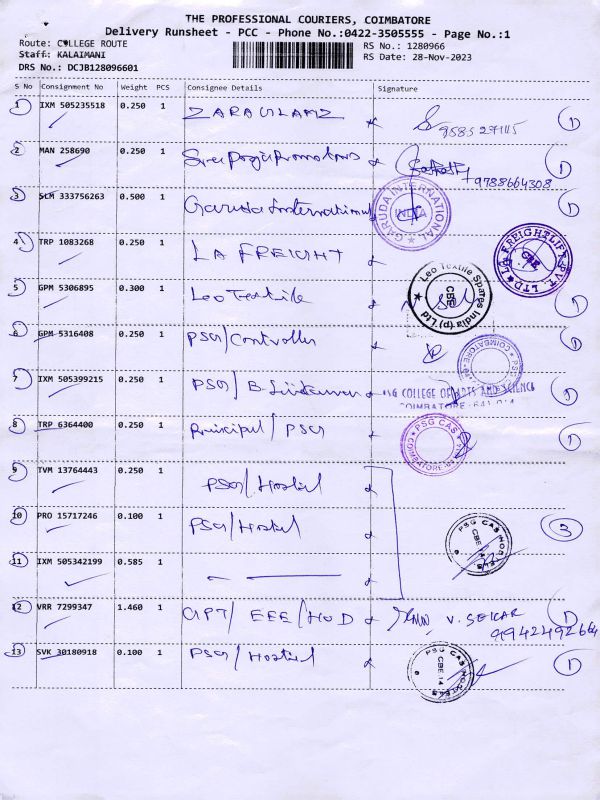 THE PROFESSIONAL COURIERS, COIMBATORE
Delivery Runsheet - PCC - Phone No.:0422-3505555 - Page No.:1
Route: COLLEGE ROUTE
RS No.: 1280966
Staff: KALAIMANI
RS Date: 28-Nov-2023
DRS No.: DCJB128096601
S No Consignment No Weight PCS Consignee Details Signature
1 IXM 505235518 0.250 1 1
2 MAN 258690 0.250 1 Sree Pooja Promotions 9788664308 1
3 SLM 333756263 0.500 1 Garuda International GARUDA INTERNATIONAL INDIA 1
4 TRP 1083268 0.250 1 LA FREIGHT LA FREIGHTLIFT PVT. LTD CBE
5 GPM 5306895 0.300 1 Leo Textile Leo Textile Spares India (p) Ltd CBE 1
6 GPM 5316408 0.250 1 PSG/Controller COIMBATORE 1
7 IXM 505399215 0.250 1 PSG/ B. PSG COLLEGE OF ARTS AND SCIENCE 1
COIMBATORE-641 014
8 TRP 6364400 0.250 1 Principal/ PSG PSG CAS COIMBATORE 1
9 TVM 13764443 0.250 1 PSG/Hostel
10 PRO 15717246 0.100 1 PSG/Hostel PSG CAS HOSTELS CBE 14 3
11 IXM 505342199 0.585 1
12 VRR 7299347 1.460 1 GPT/ EEE/HOD V. SEKAR 1
9942492664
13 SVK 30180918 0.100 1 PSG/Hostel PSG CAS HOSTELS CBE 14 1